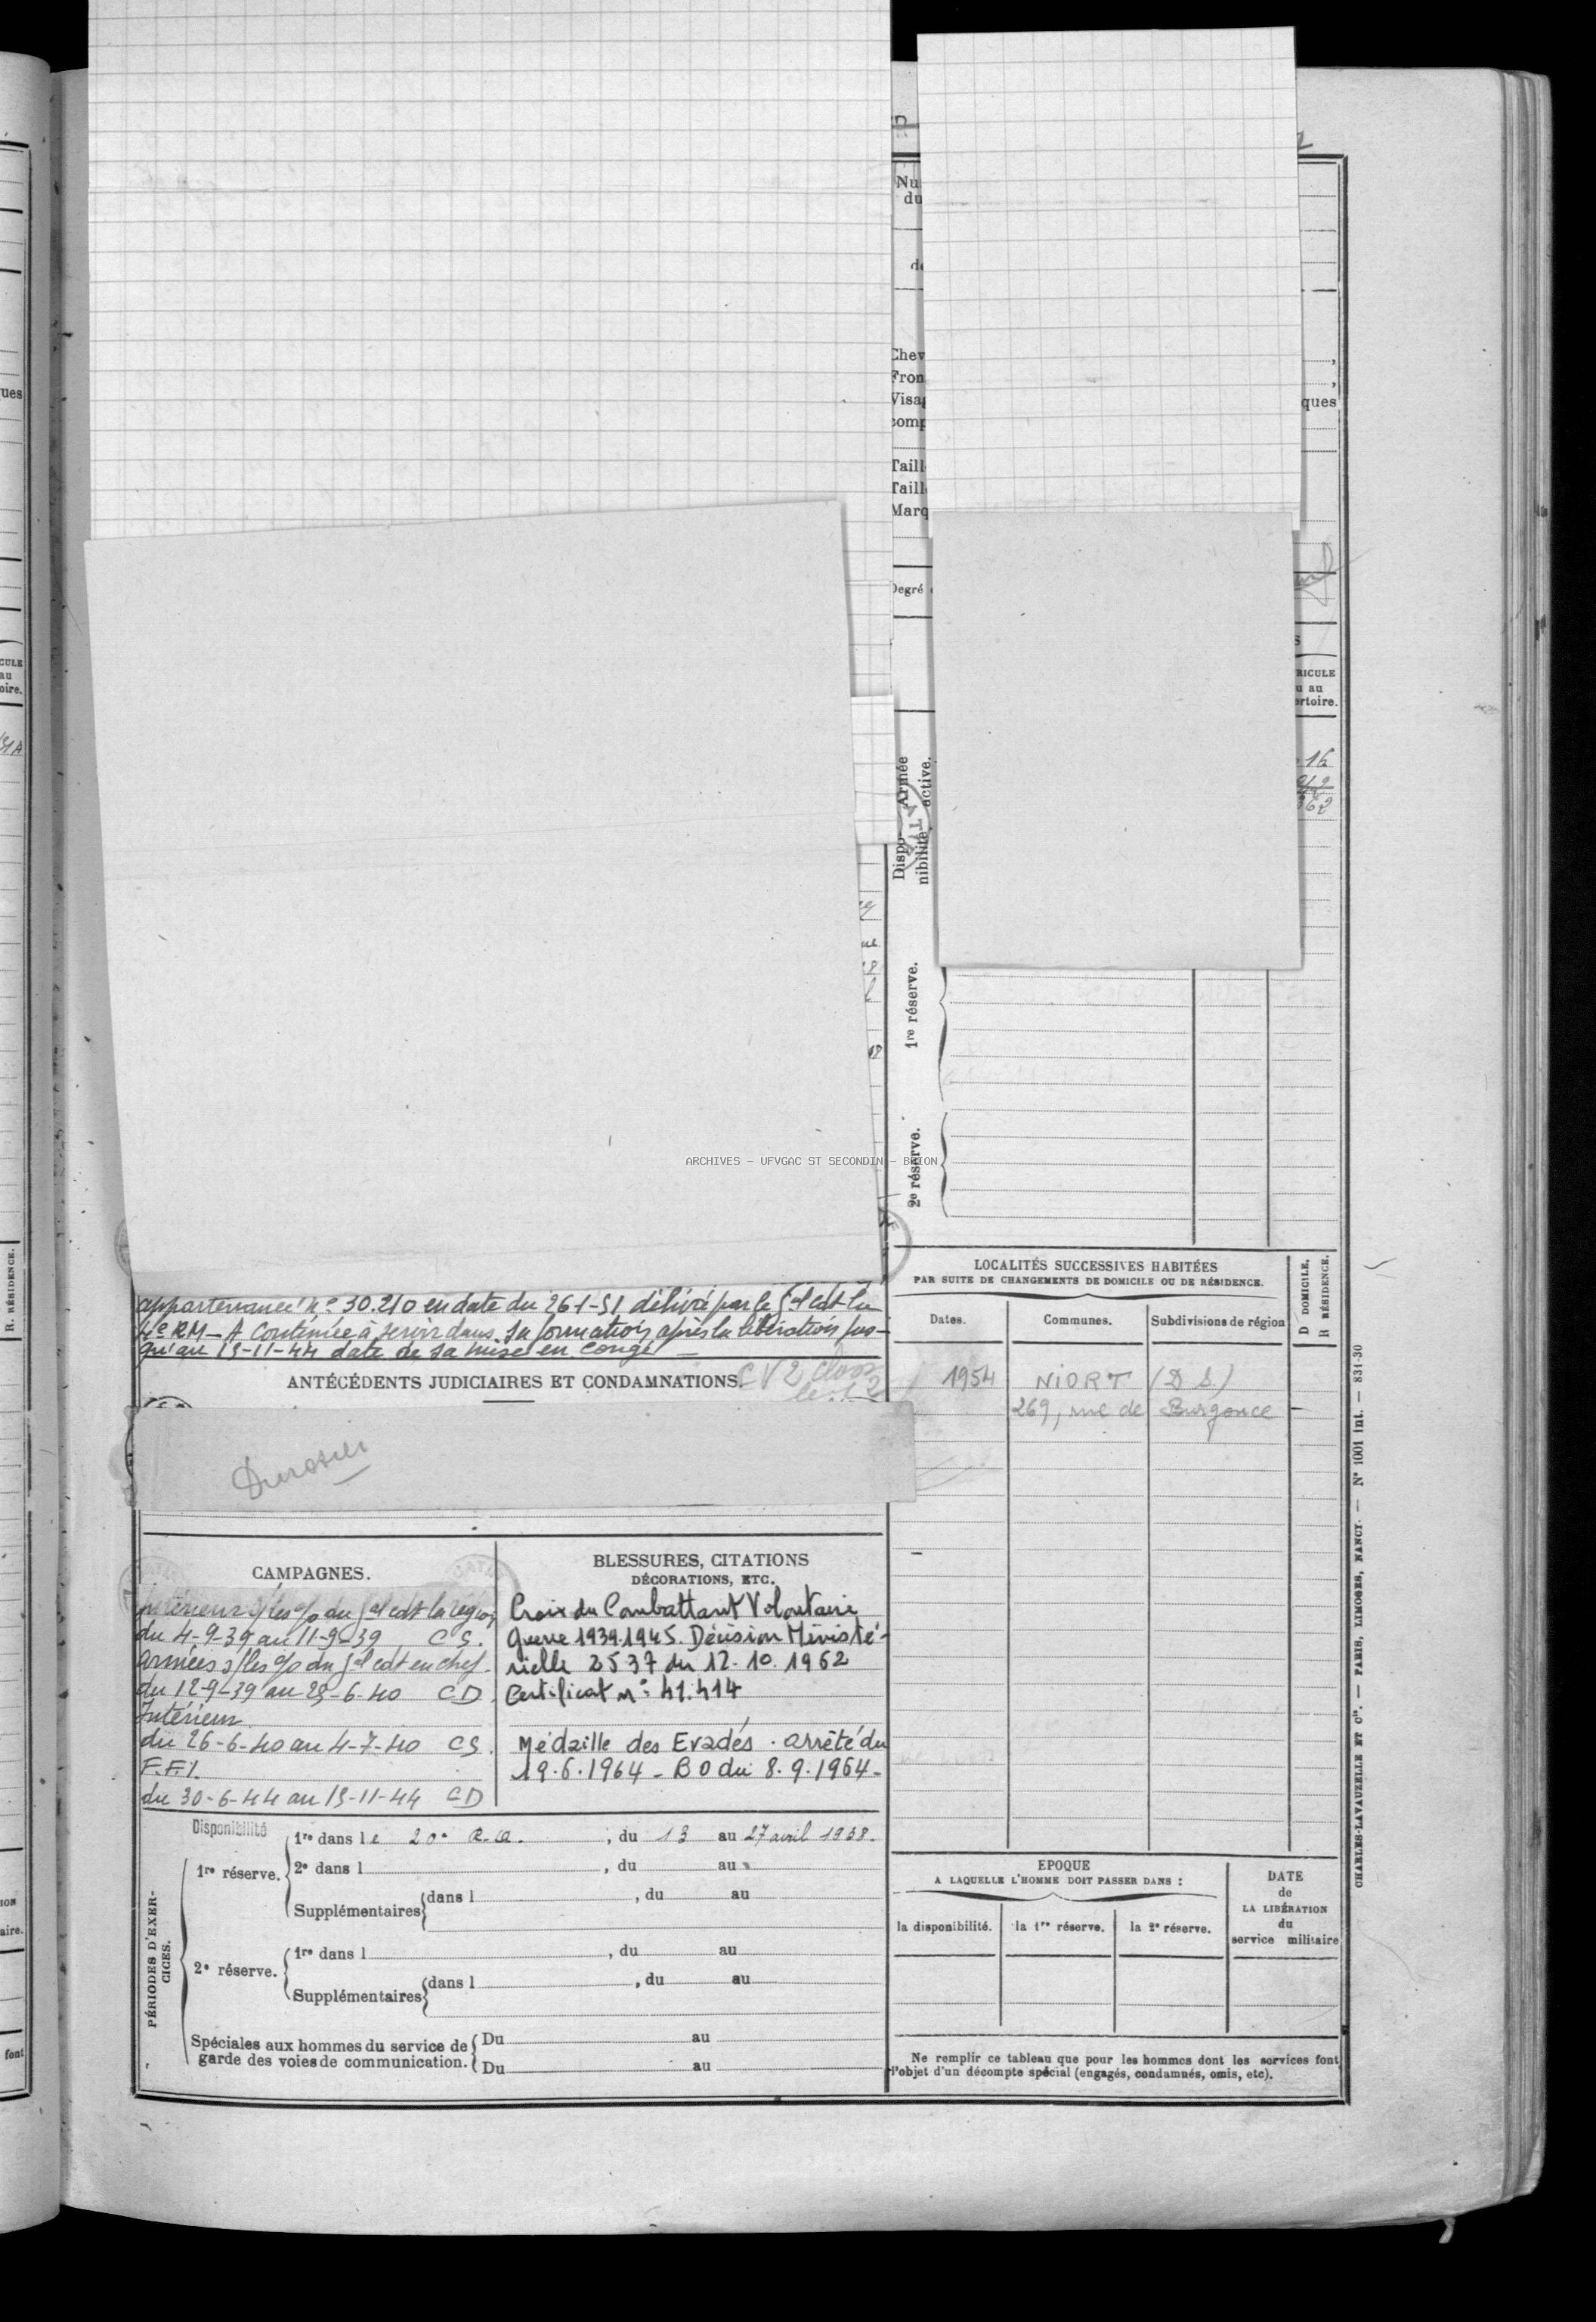 ques
Nu
du
de
Chev
Fron
Visag
comp
Taill
Taill
Marq
Degré
ques
RICULE
u au
ertoire.
16
362
Armée
active.
Dispo-
nibilité
1re réserve.
2e réserve.
ARCHIVES – UFVGAC ST SECONDIN – BRION
appartenance n° 30.210 en date du 26-1-51 délivré par le Gal Cdt la
4e RM – A continué à servir dans sa formation après la libération jus-
qu'au 15-11-44 date de sa mise en congé –
ANTÉCÉDENTS JUDICIAIRES ET CONDAMNATIONS.
CV 2
CAMPAGNES.
Intérieur s/les o/o du Gal Cdt la région
du 4-9-39 au 11-9-39 CS.
Armées s/les o/o du Gal Cdt en chef.
du 12-9-39 au 25-6-40 CD
Intérieur
du 26-6-40 au 4-7-40 CS.
F.F.I.
du 30-6-44 au 15-11-44 CD
BLESSURES, CITATIONS
DÉCORATIONS, ETC.
Croix du Combattant Volontaire
Guerre 1939.1945. Décision Ministé-
rielle 2537 du 12.10.1962
Certificat n°: 41.414
Médaille des Evadés. arrêté du
19.6.1964 – BO du 8.9.1964 –
PÉRIODES D'EXER-
CICES.
Disponibilité
1re réserve.
1re dans le 20e R.A. , du 13 au 27 avril 1938.
2e dans l , du au
Supplémentaires dans l , du au
2e réserve.
1re dans l , du au
Supplémentaires dans l , du au
Spéciales aux hommes du service de
garde des voies de communication.
Du au
Du au
LOCALITÉS SUCCESSIVES HABITÉES
PAR SUITE DE CHANGEMENTS DE DOMICILE OU DE RÉSIDENCE.
D DOMICILE.
R RÉSIDENCE.
Dates. Communes. Subdivisions de région
1954 NIORT (D.S.)
269, rue de Burgonce
EPOQUE
A LAQUELLE L'HOMME DOIT PASSER DANS :
la disponibilité. la 1re réserve. la 2e réserve.
DATE
de
LA LIBÉRATION
du
service militaire
Ne remplir ce tableau que pour les hommes dont les services font
l'objet d'un décompte spécial (engagés, condamnés, omis, etc).
CHARLES-LAVAUZELLE ET Cie. — PARIS, LIMOGES, NANCY. — N° 1001 int. — 831-30
R. RÉSIDENCE.